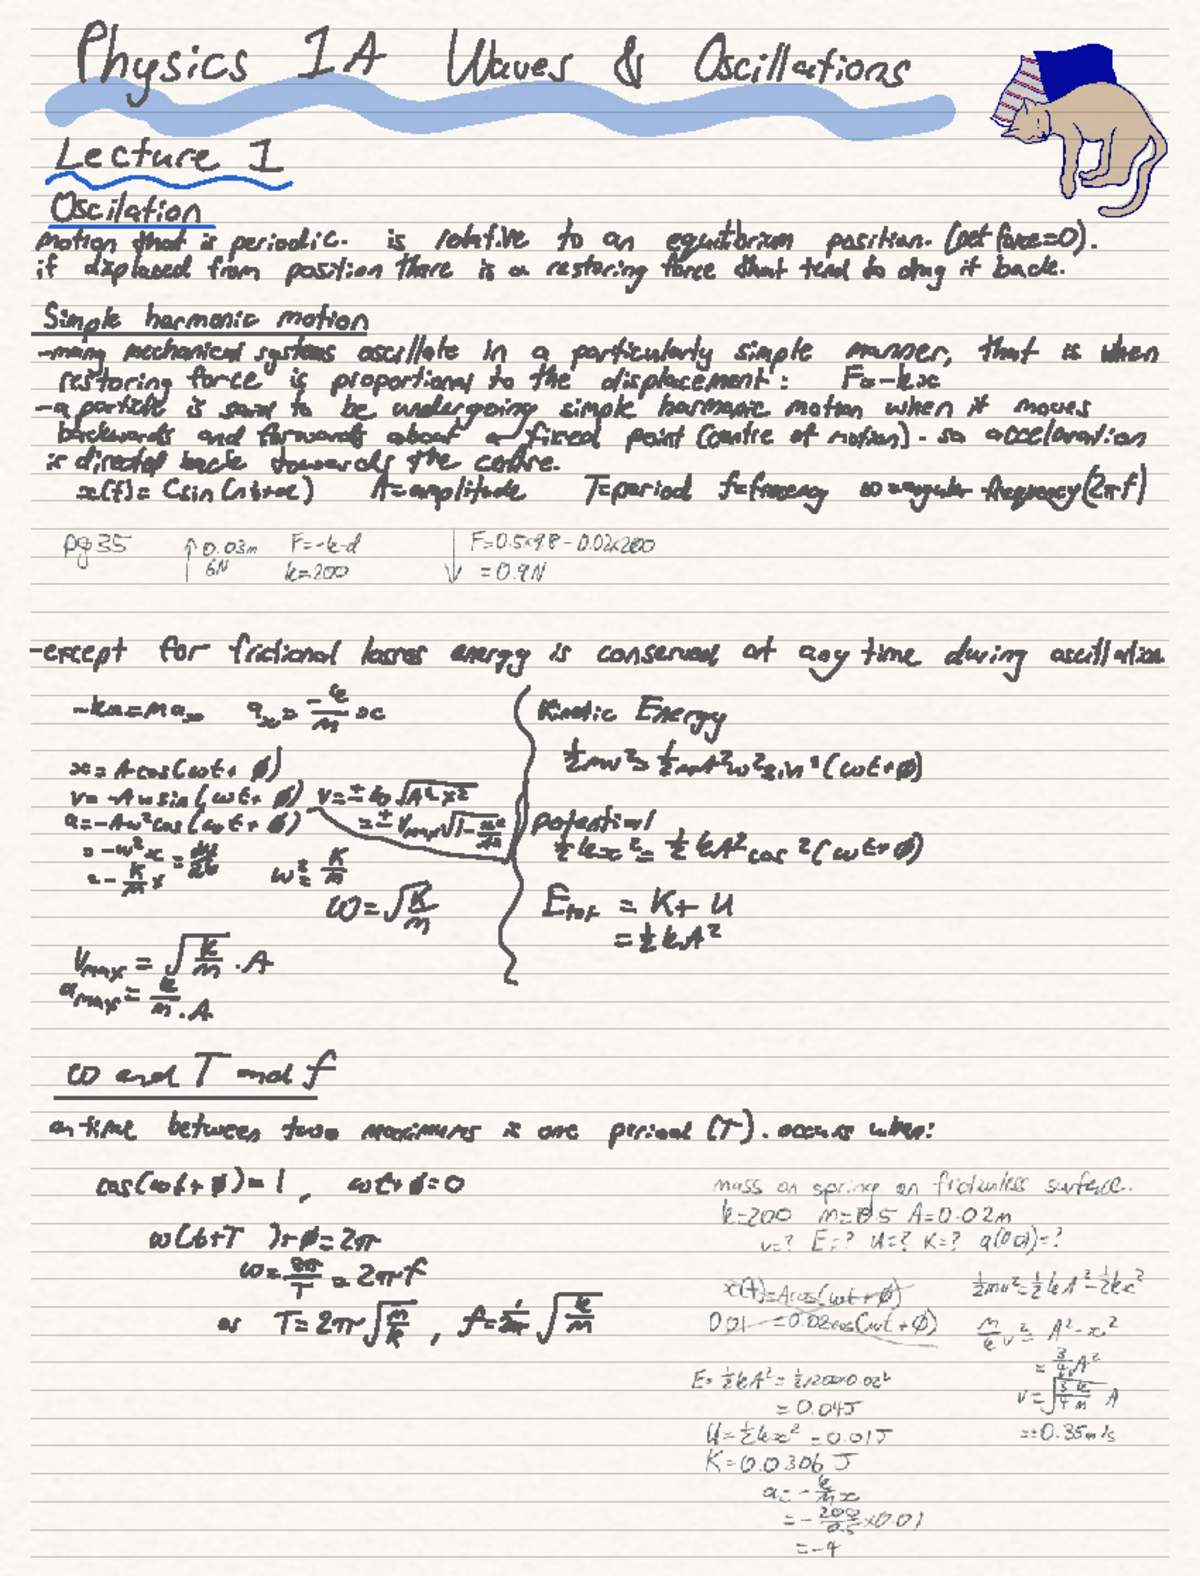 Physics 1A Waves & Oscillations
Lecture 1
Oscilation
motion that is periodic. is relative to an equilibrium position. (net force=0).
if displaced from position there is a restoring force that tend to drag it back.
Simple harmonic motion
-many mechanical systems oscillate in a particularly simple manner, that is when
restoring force is proportional to the displacement: F=-kx
-a particle is said to be undergoing simple harmonic motion when it moves
backwards and forwards about a fixed point (centre of motion). so acceleration
is directed back towards the centre.
x(t)= Csin(nt+α) A=amplitude T=period f=frequency ω=angular frequency(2πf)
pg 35 ↑ 0.03m F=-k-d ↓ F=0.5×9.8-0.02×200
6N k=200 =0.9N
-except for frictional losses energy is conserved at any time during oscillation
-kx=max ax=-k/m x
x=Acos(ωt+ϕ)
v=-Aωsin(ωt+ϕ) v=±ω√A²-x²
a=-Aω²cos(ωt+ϕ) =±Vmax√1-x²/A²
=-ω²x =dv/dt
=-k/m x ω²=K/m
ω=√K/m
Vmax=√k/m .A
amax=k/m .A
Kinetic Energy
½mv²=½mA²ω²sin²(ωt+ϕ)
potential
½kx²=½kA²cos²(ωt+ϕ)
Etot = K+U
=½kA²
ω and T and f
time between two maximums is one period (T). occurs when:
cos(ωt+ϕ)=1, ωt+ϕ=0
ω(t+T)+ϕ=2π
ω=2π/T=2πf
or T=2π√m/k, f=1/2π√k/m
mass on spring on frictionless surface.
k=200 m=0.5 A=0.02m
v=? E=? U=? K=? a(0.01)=?
x(t)=Acos(ωt+ϕ)
0.01=0.02cos(ωt+ϕ)
½mv²=½kA²-½kx²
m/k v²=A²-x²
=¾A²
v=√3k/4m A
=0.35m/s
E=½kA²=½×200×0.02²
=0.04J
U=½kx²=0.01J
K=0.0306J
a=-k/m x
=-200/0.5×0.01
=-4